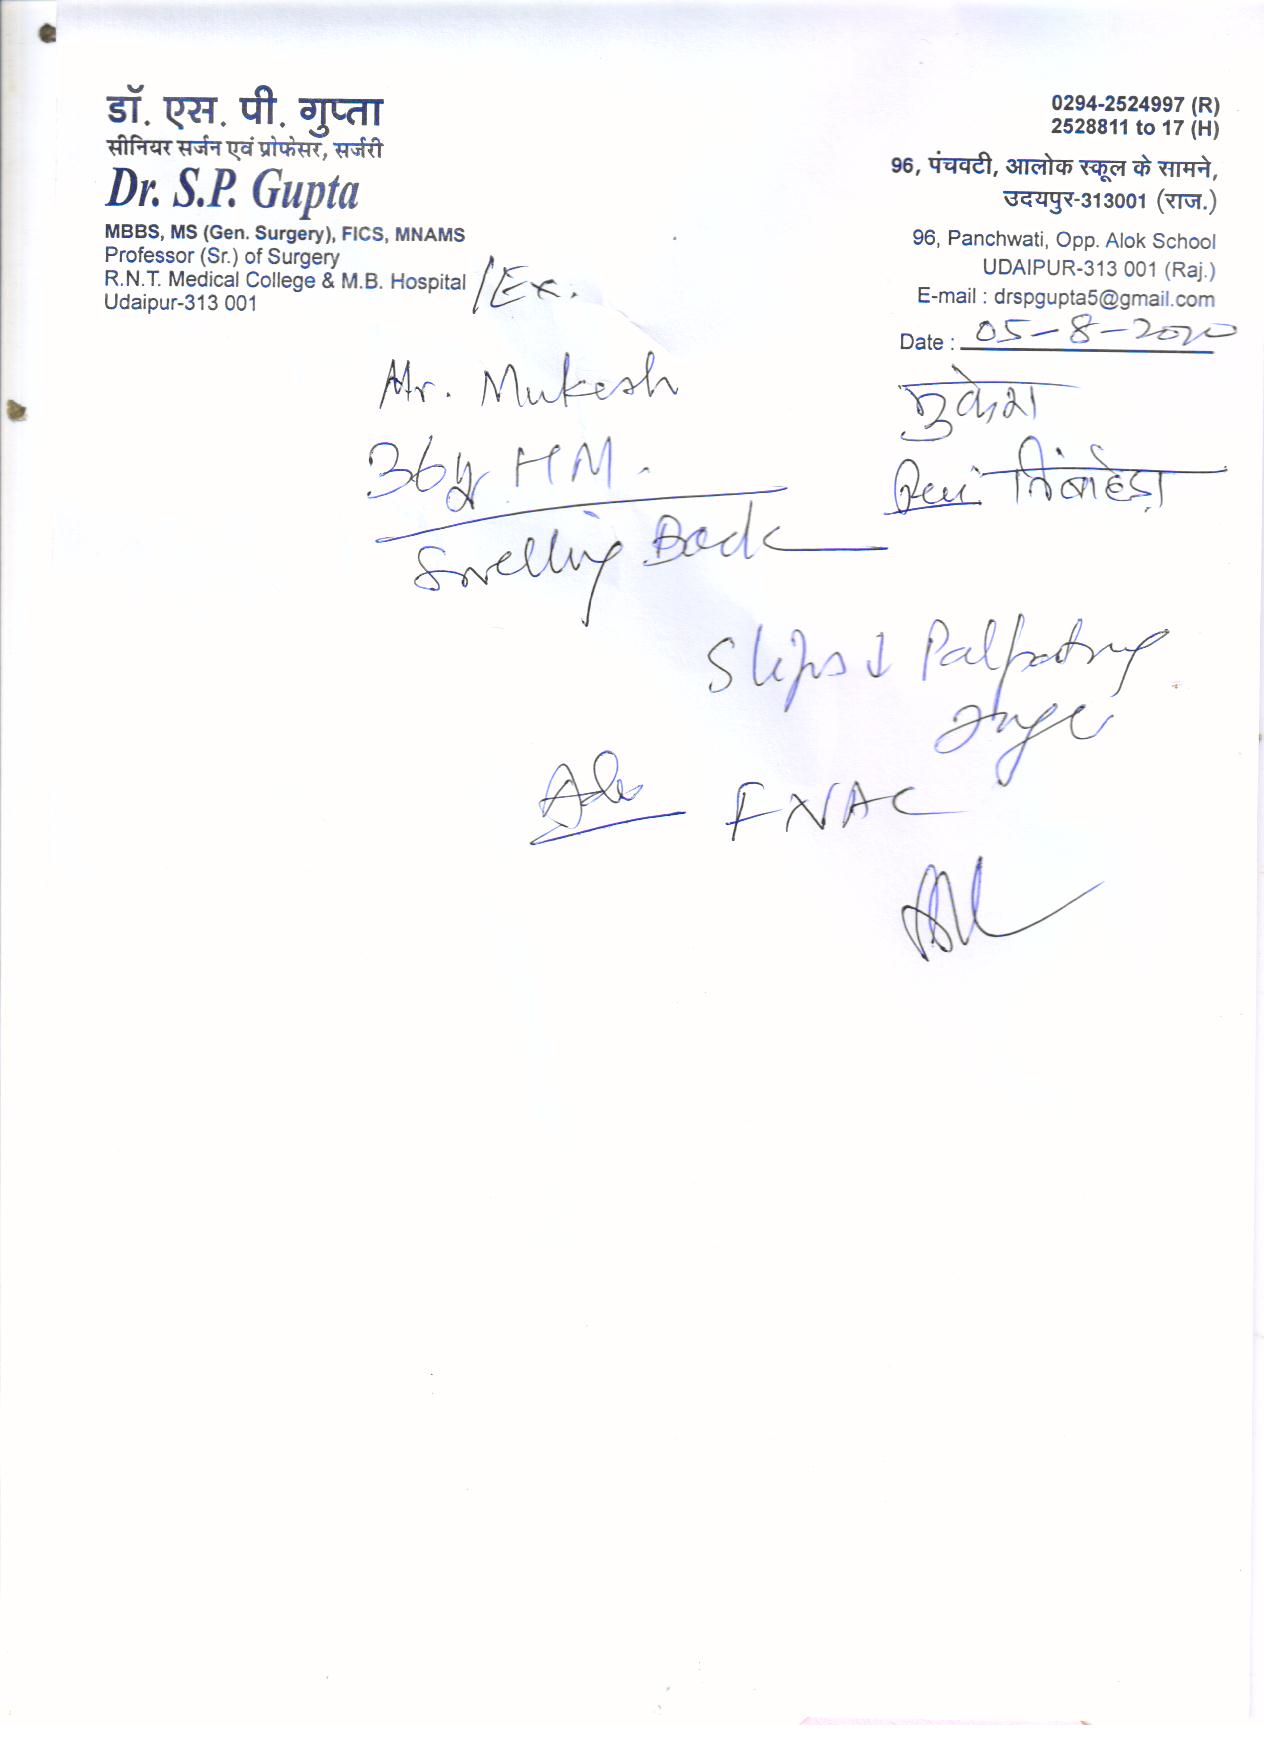 डॉ. एस. पी. गुप्ता
सीनियर सर्जन एवं प्रोफेसर, सर्जरी
Dr. S.P. Gupta
MBBS, MS (Gen. Surgery), FICS, MNAMS
Professor (Sr.) of Surgery
R.N.T. Medical College & M.B. Hospital /Ex.
Udaipur-313 001
0294-2524997 (R)
2528811 to 17 (H)
96, पंचवटी, आलोक स्कूल के सामने,
उदयपुर-313001 (राज.)
96, Panchwati, Opp. Alok School
UDAIPUR-313 001 (Raj.)
E-mail : drspgupta5@gmail.com
Date : 05-8-2020
Mr. Mukesh
36y HM.
मुकेश
निंबाहेडा
Swelling Back
Slips ↓ Palpating
Adv FNAC